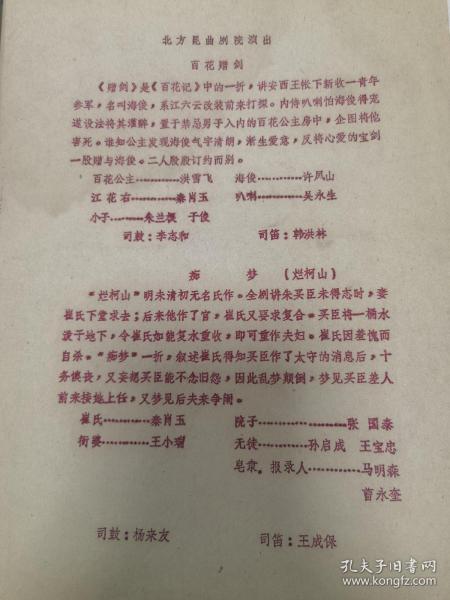 北方昆曲剧院演出
百花赠剑
《赠剑》是《百花记》中的一折，讲安西王帐下新收一青年
参军，名叫海俊，系江六云改装前来打探。内侍叭喇怕海俊得宠
道设法将其灌醉，置于禁忌男子入内的百花公主房中，企图将他
害死。谁知公主发现海俊气宇清朗，渐生爱意，反将心爱的宝剑
一股赠与海俊。二人殷殷订约而别。
百花公主…………洪雪飞 海俊…………许凤山
江花右…………秦肖玉 叭喇…………吴永生
小子………朱兰模 于俊
司鼓：李志和 司笛：韩洪林
痴 梦 （烂柯山）
“烂柯山”明末清初无名氏作。全剧讲朱买臣未得志时，妻
崔氏下堂求去；后来他作了官，崔氏又要求复合。买臣将一桶水
泼于地下，令崔氏如能复水重收，即可重作夫妇。崔氏因羞愧而
自杀。“痴梦”一折，叙述崔氏得知买臣作了太守的消息后，十
务懊丧，又妄想买臣能不念旧怨，因此乱梦颠倒，梦见买臣差人
前来接她上任，又梦见后夫来争闹。
崔氏…………秦肖玉 院子…………张国泰
衙婆…………王小瑞 无徒…………孙启成 王宝忠
皂隶．报录人…………马明森
曹永奎
司鼓：杨来友 司笛：王成保
孔夫子旧书网
www.kongfz.com